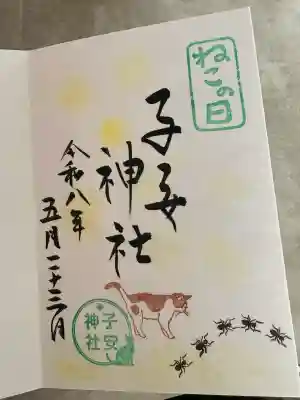 ねこの日
子安
神社
令和八年
五月二十二日
子安
神社